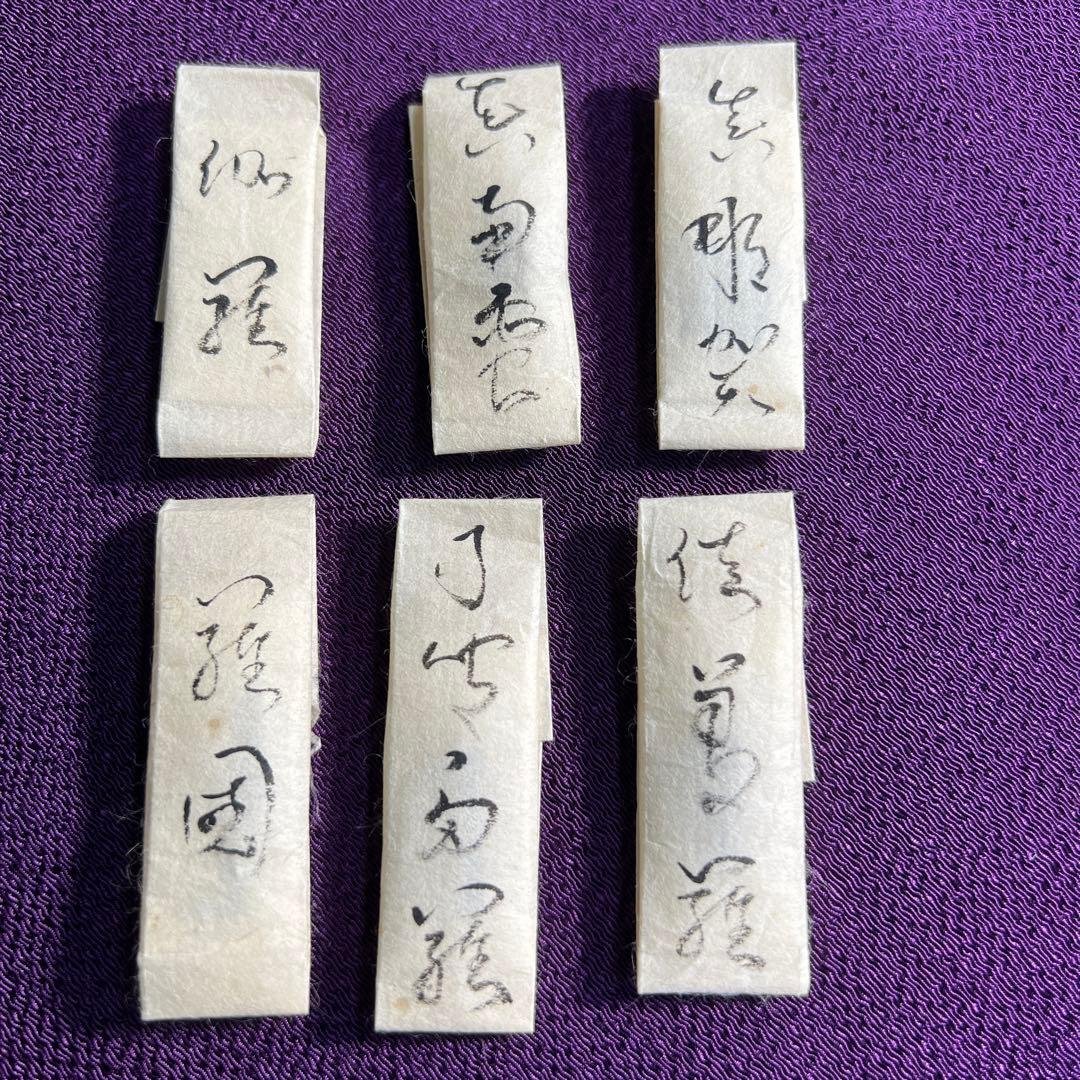 伽羅
真南蛮
真那賀
羅國
寸門多羅
佐曽羅